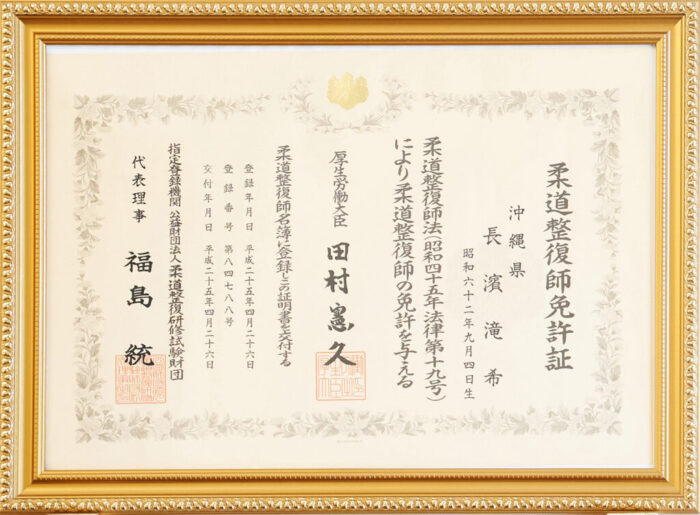 柔道整復師免許証
沖縄県
長濱滝希
昭和六十二年九月四日生
柔道整復師法(昭和四十五年法律第十九号)
により柔道整復師の免許を与える
厚生労働大臣 田村憲久
柔道整復師名簿に登録しこの証明書を交付する
登録年月日 平成二十五年四月二十六日
登録番号 第八四七八八号
交付年月日 平成二十五年四月二十六日
指定登録機関 公益財団法人 柔道整復研修試験財団
代表理事 福島統